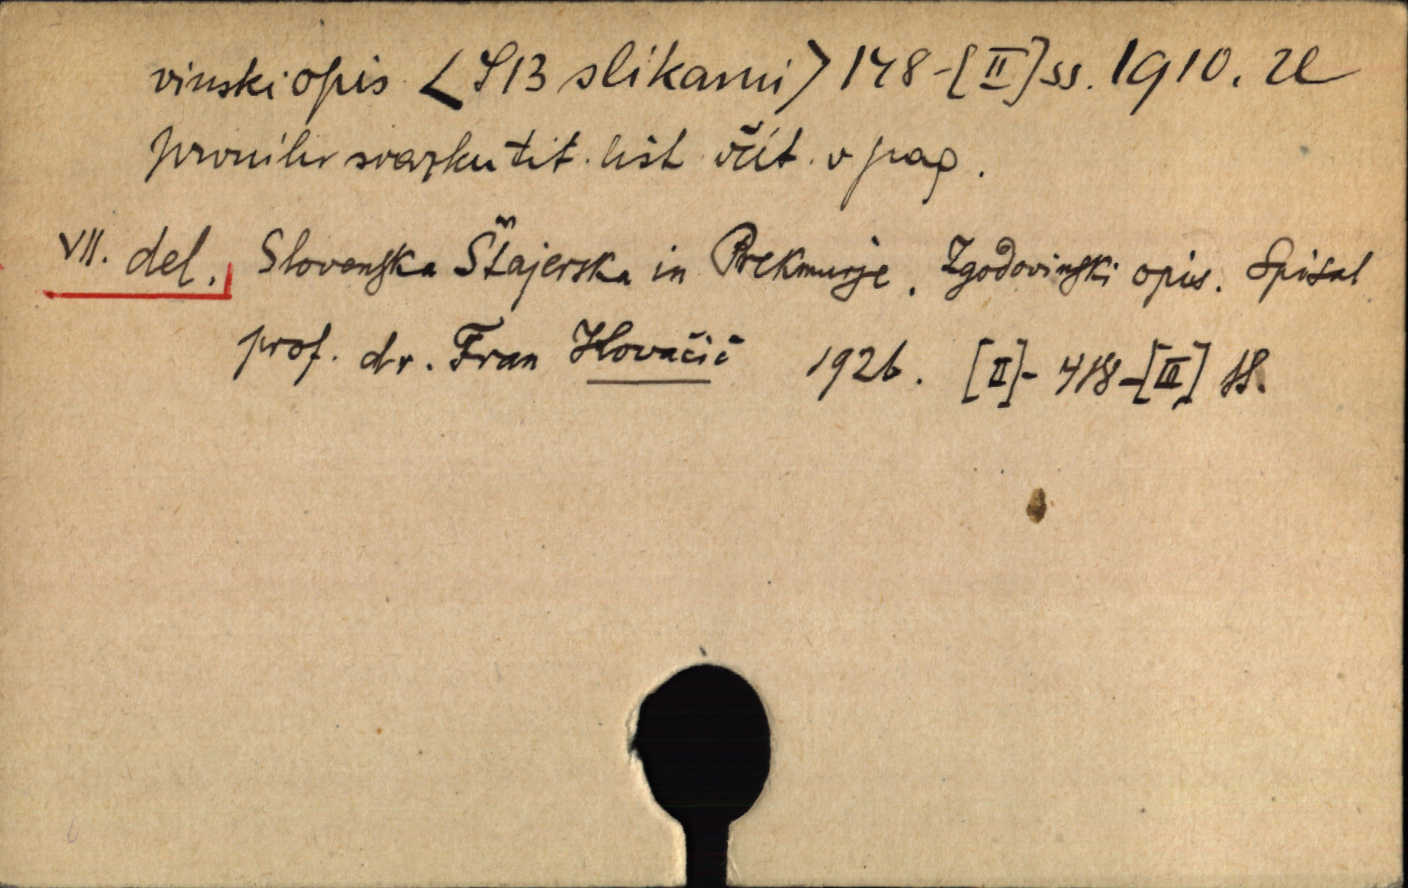 vinski opis <S 13 slikami> 148-[II] ss. 1910. Ul
prvnih svazku tit. list včít. v pag.
VII. del. Slovenska Štajerska in Prekmurje. Zgodovinski opis. Spisal
prof. dr. Fran Kovačič 1926. [II]-418-[III] ss.
6